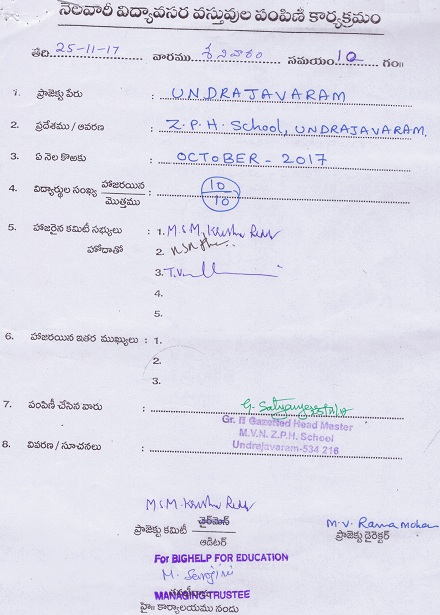 నెలవారీ విద్యావసర వస్తువుల పంపిణీ కార్యక్రమం
తేది 25-11-17 వారము శనివారం సమయం 10 గం॥
1. ప్రాజెక్టు పేరు : UNDRAJAVARAM
2. ప్రదేశము / ఆవరణ : Z.P.H. School, UNDRAJAVARAM.
3. ఏ నెల కొఱకు : OCTOBER - 2017
4. విద్యార్థుల సంఖ్య హాజరయిన / మొత్తము : 10 / 10
5. హాజరైన కమిటీ సభ్యులు : 1. M.S.M. Krishna Reddy
హోదాతో 2.
3. T.V.
4.
5.
6. హాజరయిన ఇతర ముఖ్యులు : 1.
2.
3.
7. పంపిణీ చేసిన వారు :
Gr. II Gazetted Head Master
M.V.N. Z.P.H. School
Undrajavaram-534 216
8. వివరణ / సూచనలు :
M.S.M. Krishna Reddy
ప్రాజెక్టు కమిటీ ఛైర్‌మాన్
ఆడిటర్
M.V. Rama Mohan
ప్రాజెక్టు డైరెక్టర్
For BIGHELP FOR EDUCATION
M. Sarojini
MANAGING TRUSTEE
హై॥ కార్యాలయము నందు